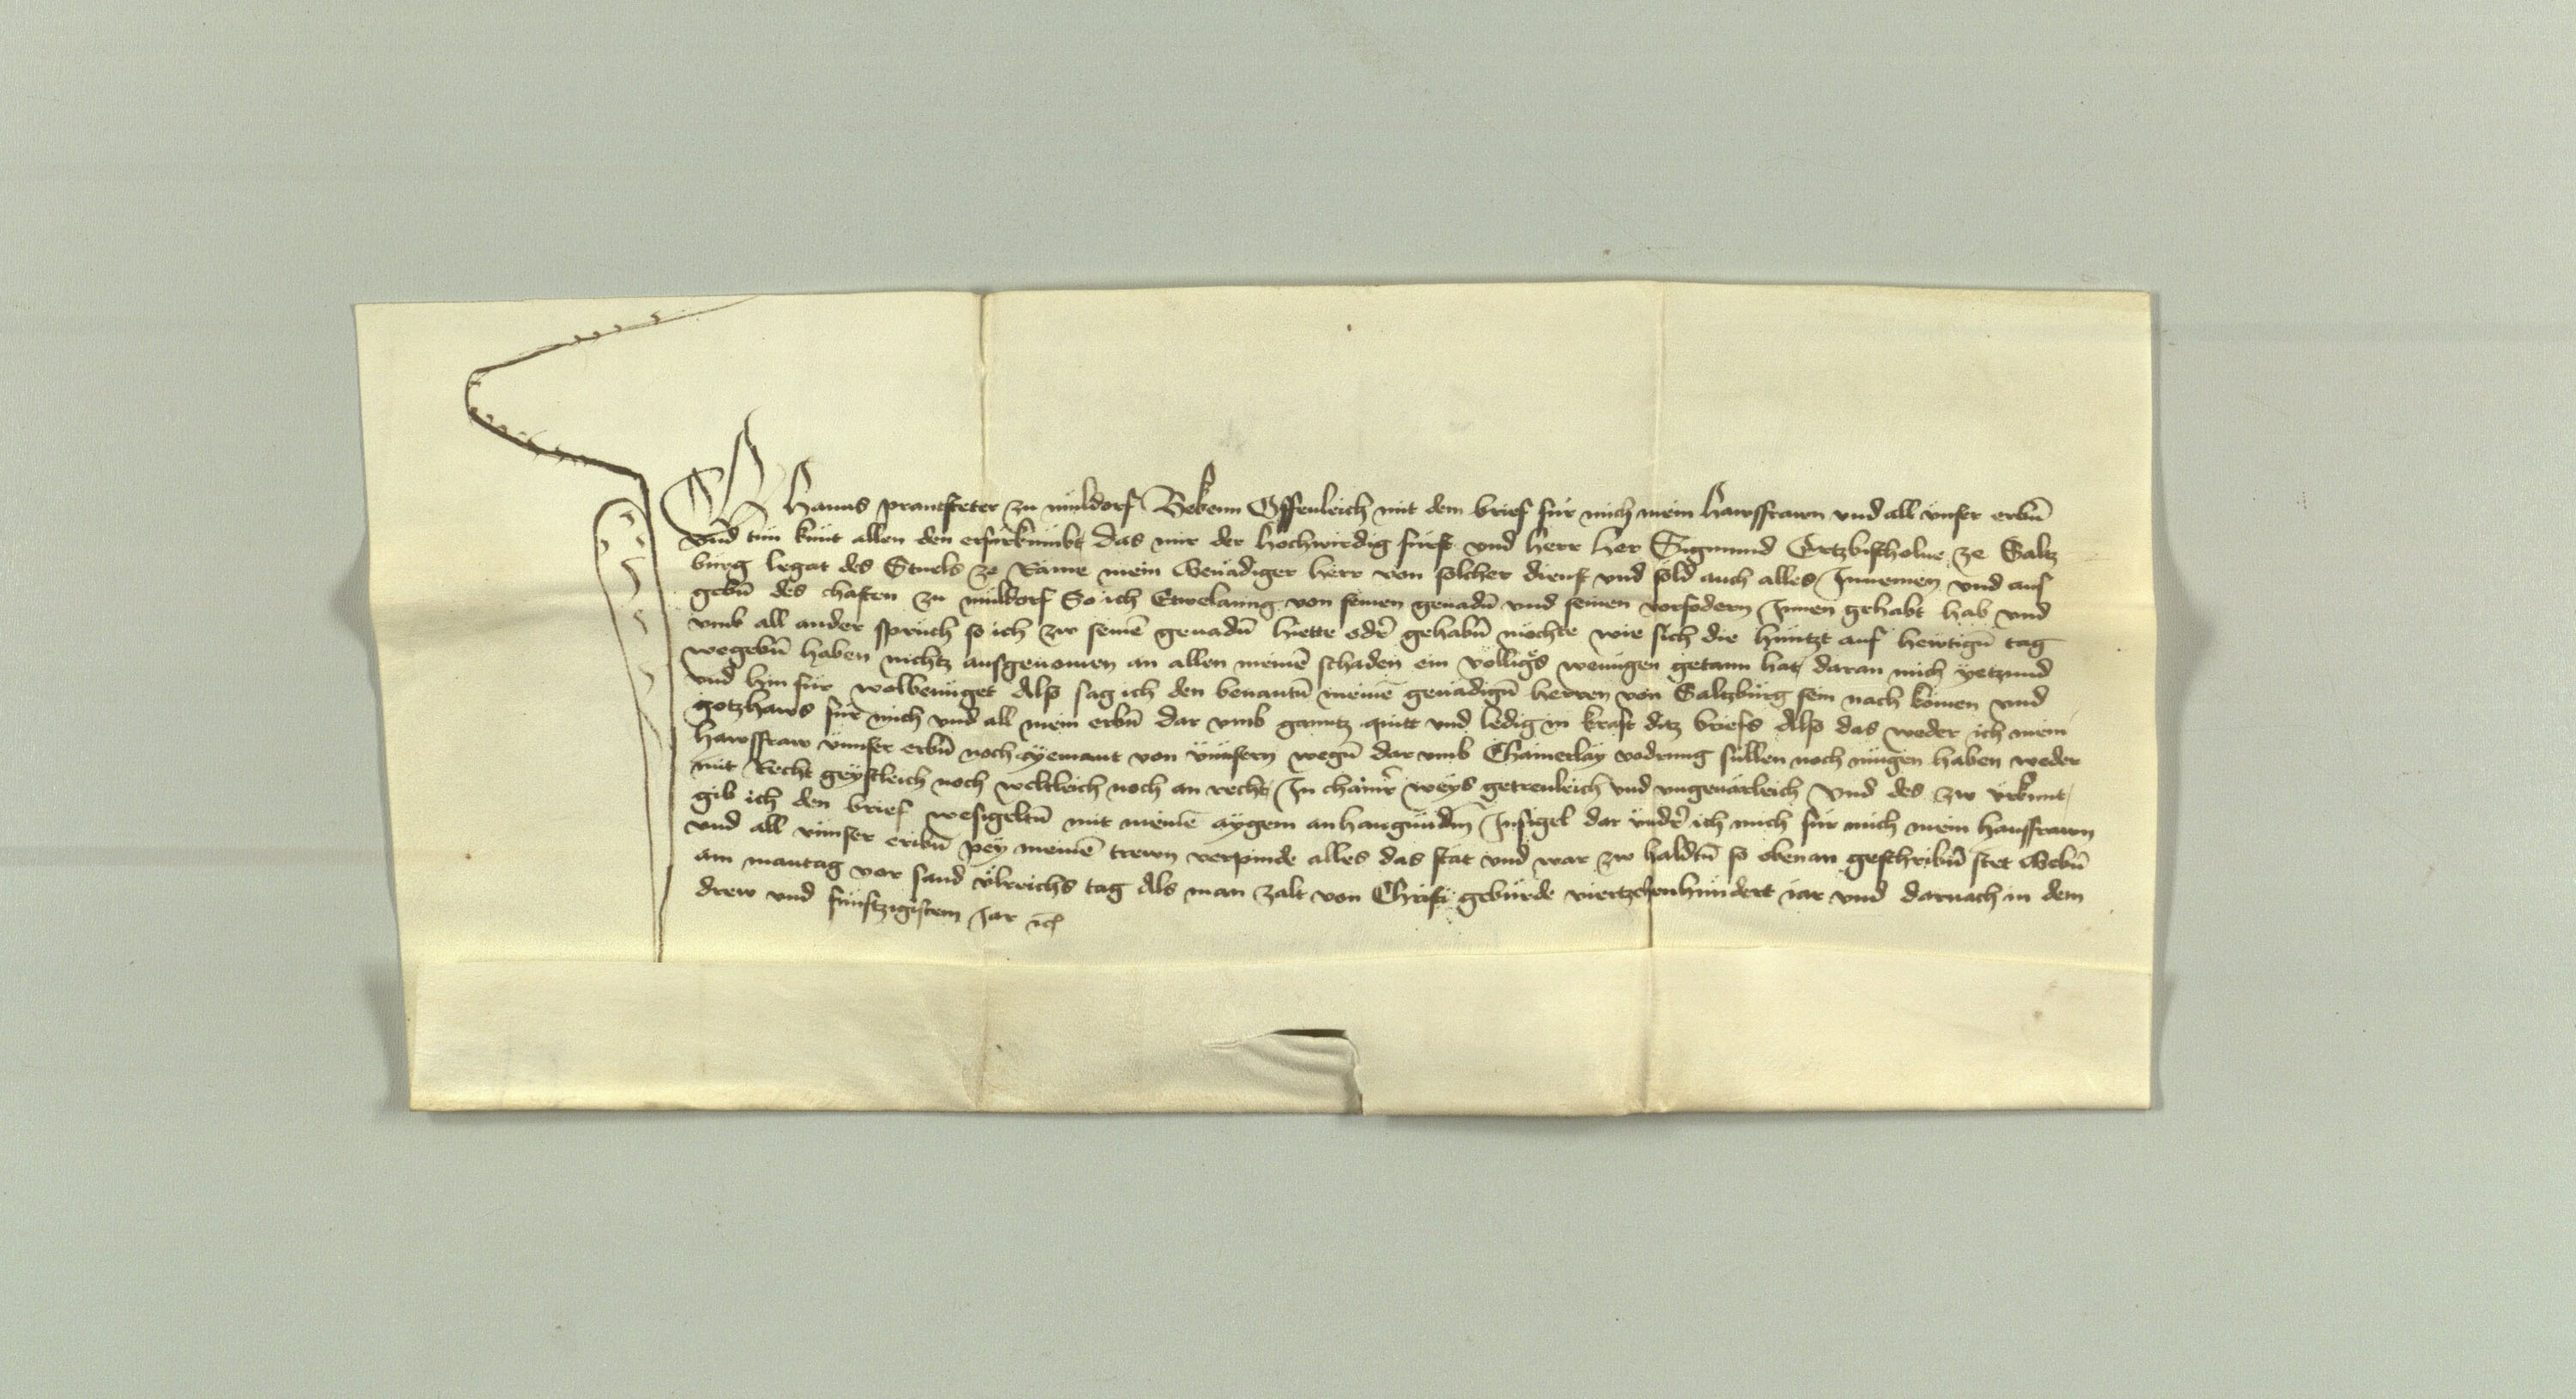 Ich Hanns prantsteter zu müldorf Bekenn Offenleich mit dem brief für mich mein hawsfrawn vnd all vnser erbn̄
vnd tün künt allen den erfürkümbt das mir der hochwirdig fürst vnd herr her Sigmund Ertzbischolue ze Saltz
bürg legat des Stuels ze Rame mein Genädiger herr von solcher dienst vnd sold auch alles Innemen vnd aus
gebn̄ des chasten zu müldorf So ich Etwelanng von seinen genadn̄ vnd seinen vorfodern Innen gehabt hab vnd
vmb all ander sprüch so ich zw seinē genadn̄ hiette odr̄ gehabn̄ möchte wie sich die hüntzt auf hewtign̄ tag
wegebn̄ haben nichtz ausgenomen an allen meinē schaden ein völligs wenügen getann hat daran mich yetzund
vnd hin für wolbenüget Also sag ich den benantn̄ meinē genädign̄ herren von Saltzbürg sein nach komen vnd
gotzhaws für mich vnd all mein erbn̄ dar vmb ganntz quitt vnd ledig in kraft ditz briefs Also das weder ich mein
hawsfraw vnnser erbn̄ noch yemant von vnnsern wegn̄ dar vmb Chainerlay vodrung süllen noch mügen haben weder
mit Recht geystleich noch weltleich noch an recht In chainr̄ weys getrenleich vnd vngenärleich Vnd des zw vrkünt
gib ich den brief wesigeltn̄ mit meinē aygem anhangünden Insigel dar vndr̄ ich mich für mich mein hausfrawn
vnd all vnnser eribn̄ pey meinē trewn verpinde alles das stät vnd war zw haldtn̄ so oben an geschribn̄ stet Gebn̄
am mantag vor sand vlreichs tag Als man zalt von Christi gebürde viertzehenhündert iar vnd darnach in dem
drew vnd fünftzigistem Jar